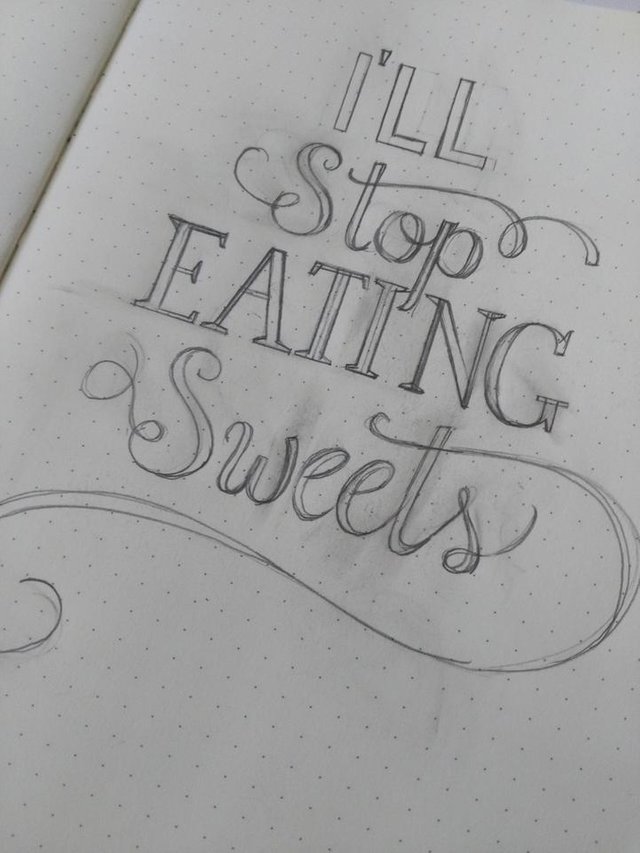 I'LL
Stop
EATING
Sweets